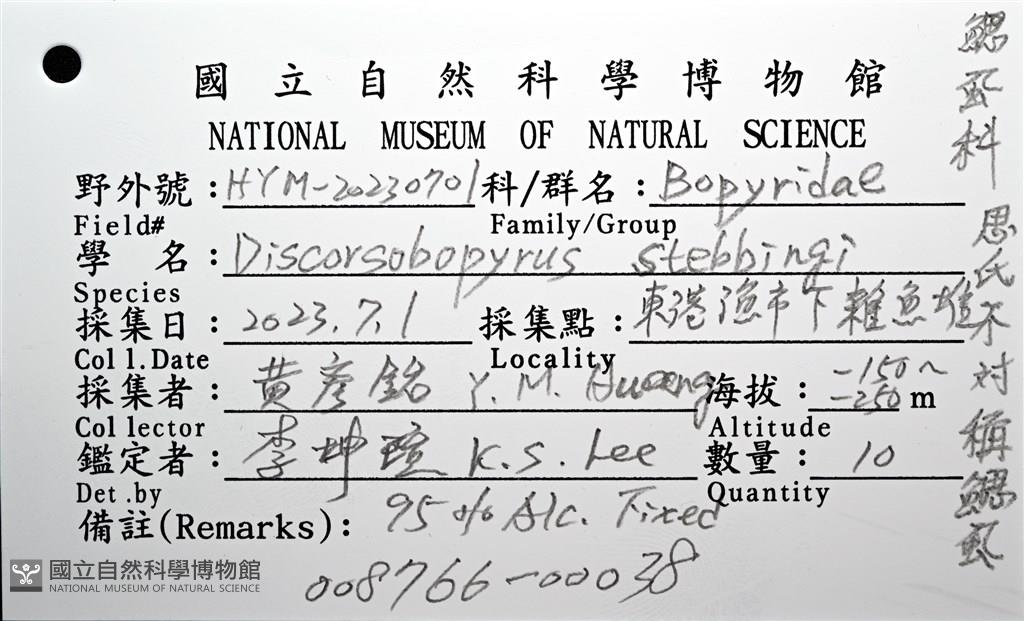 國立自然科學博物館
NATIONAL MUSEUM OF NATURAL SCIENCE
野外號：HYM-20230701 科/群名：Bopyridae
Field# Family/Group
學 名：Discorsobopyrus stebbingi
Species
採集日：2023.7.1 採集點：東港漁市下雜魚堆
Coll.Date Locality
採集者：黃彥銘 Y. M. Huang 海拔：-150~-250 m
Collector Altitude
鑑定者：李坤瑄 K.S. Lee 數量：10
Det.by Quantity
備註(Remarks)：95% Alc. Fixed
008766-00038
鰓虱科 思氏不対稱鰓虱
國立自然科學博物館
NATIONAL MUSEUM OF NATURAL SCIENCE